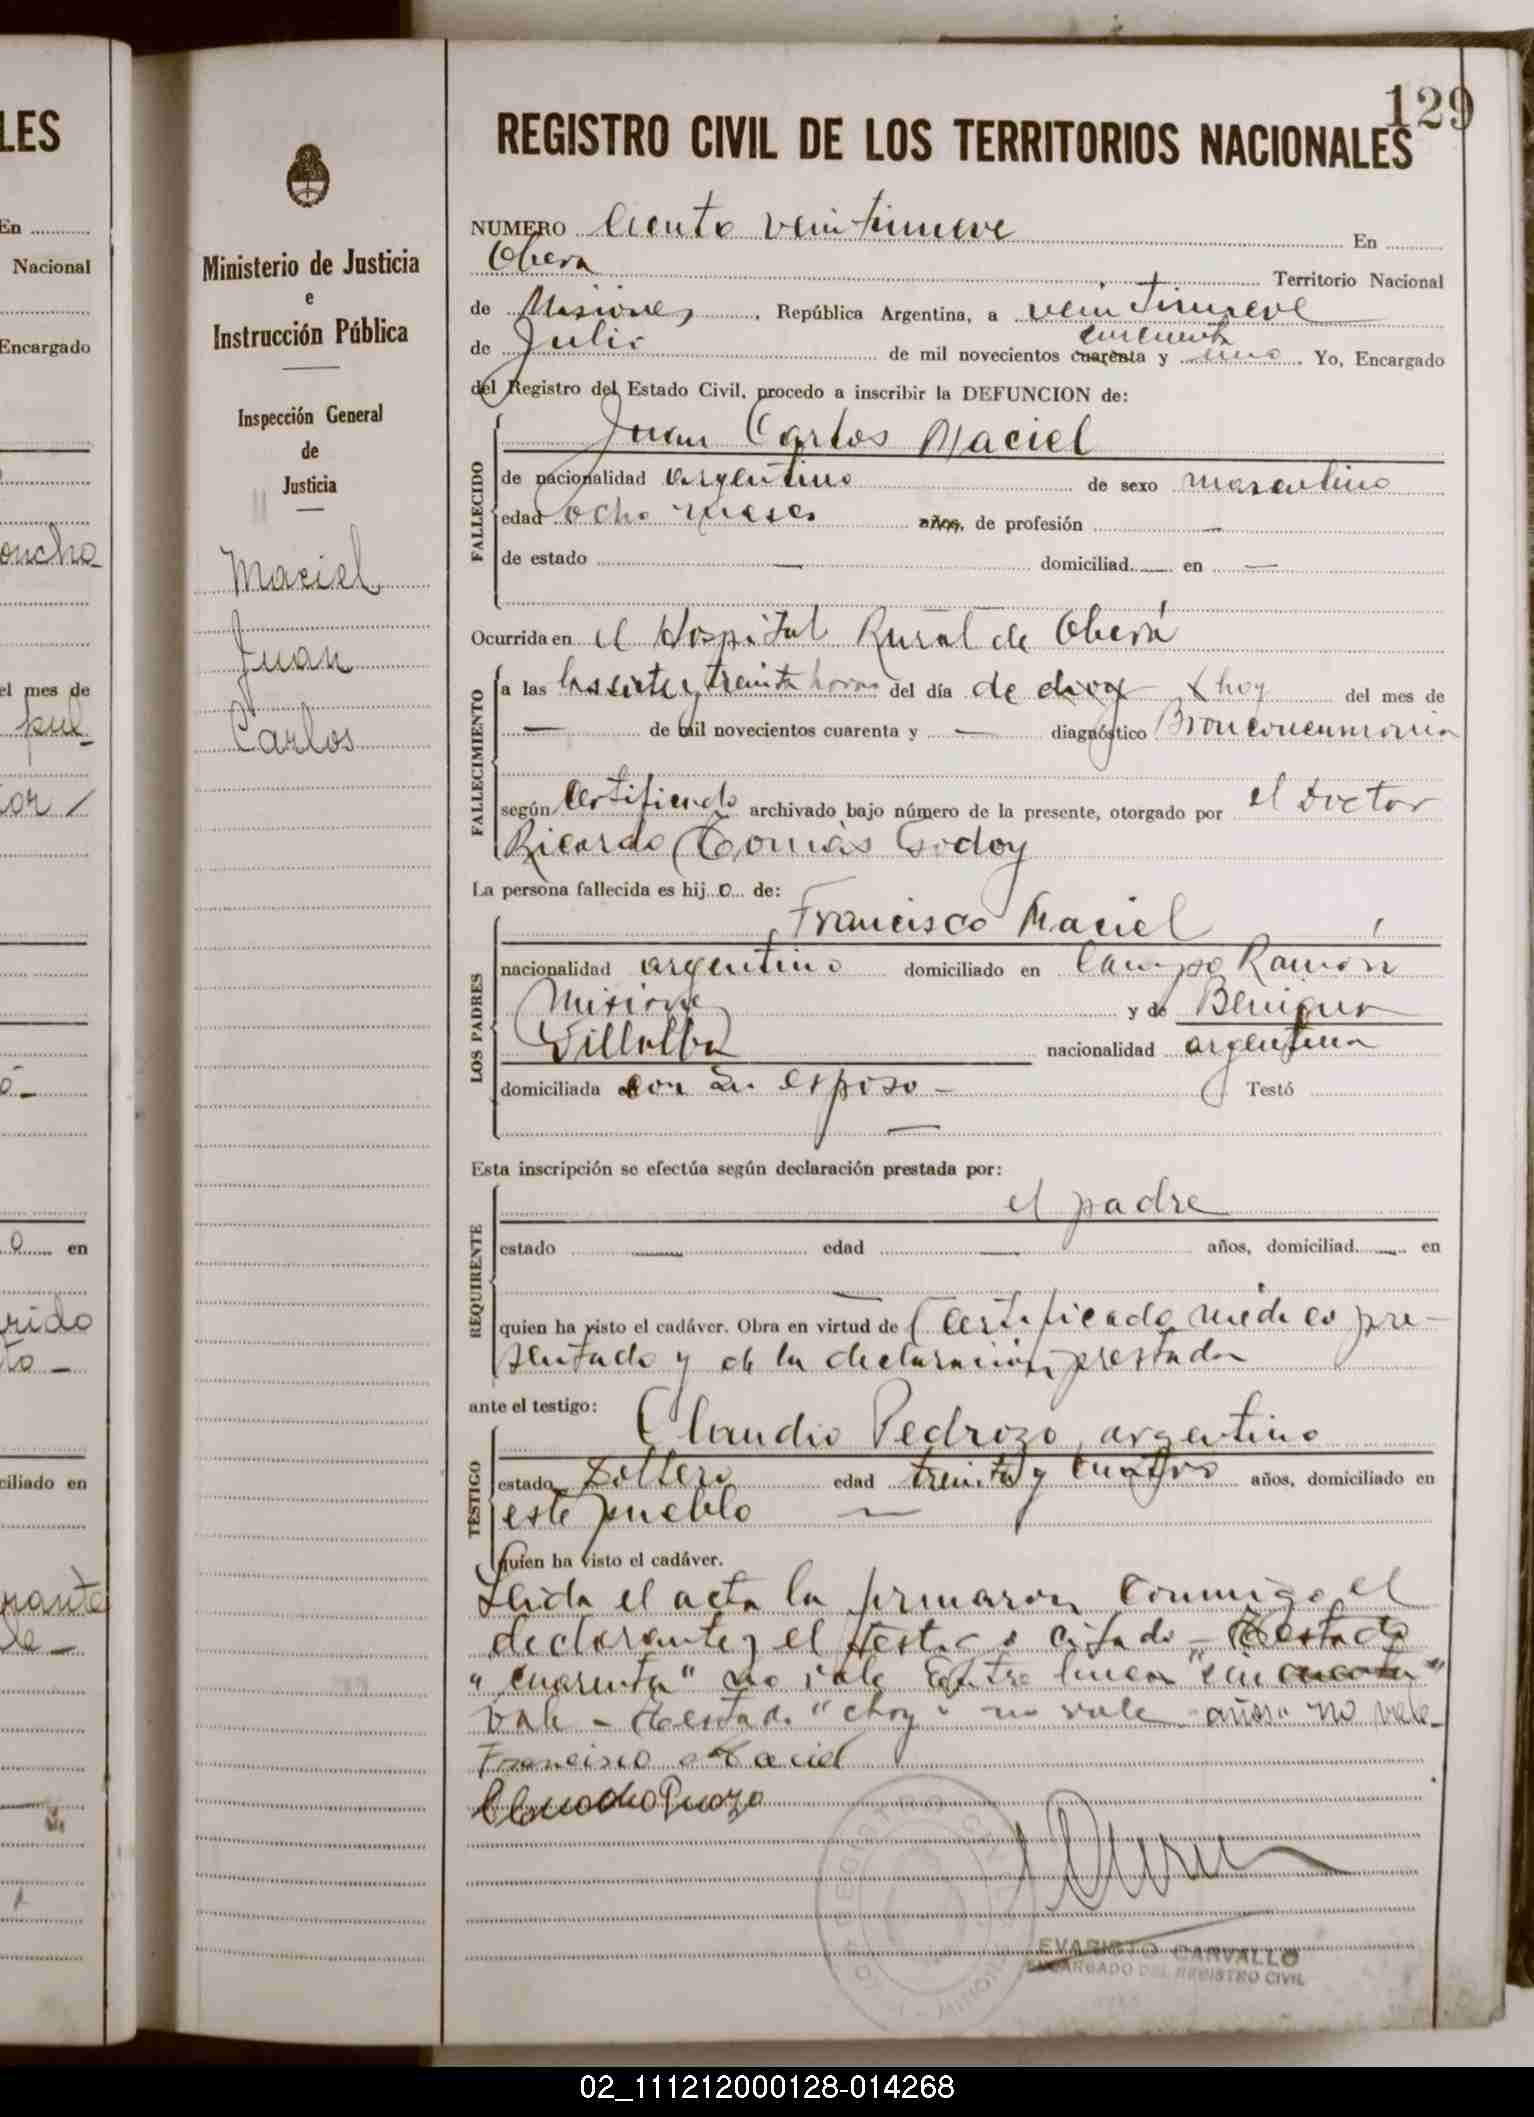 129
REGISTRO CIVIL DE LOS TERRITORIOS NACIONALES
Ministerio de Justicia
e
Instrucción Pública
Inspección General
de
Justicia
Maciel
Juan
Carlos
NUMERO Ciento veintinueve En
Oberá Territorio Nacional
de Misiones, República Argentina, a veintinueve
cincuenta
de Julio de mil novecientos cuarenta y uno. Yo, Encargado
del Registro del Estado Civil, procedo a inscribir la DEFUNCION de:
FALLECIDO
Juan Carlos Maciel
de nacionalidad argentino de sexo masculino
edad ocho meses años, de profesión —
de estado — domiciliad — en —
Ocurrida en el Hospital Rural de Oberá
FALLECIMIENTO
a las las siete y treinta horas del día de hoy del mes de
— de mil novecientos cuarenta y — diagnóstico Bronconeumonia
según Certificado archivado bajo número de la presente, otorgado por el Doctor
Ricardo Tomás Godoy
La persona fallecida es hijo de:
LOS PADRES
Francisco Maciel
nacionalidad argentino domiciliado en Campo Ramón
Misiones y de Benigna
Villalba nacionalidad argentina
domiciliada con su esposo — Testó
—
Esta inscripción se efectúa según declaración prestada por:
REQUIRENTE
el padre
estado — edad — años, domiciliad — en
—
quien ha visto el cadáver. Obra en virtud de Certificado médico pre-
sentado y de la declaración prestada
ante el testigo:
TESTIGO
Claudio Pedrozo, argentino
estado soltero edad treinta y cuatro años, domiciliado en
este pueblo —
quien ha visto el cadáver.
Leida el acta la firmaron conmigo el
declarante y el testigo citado - Testado
"cuarenta" no vale Entre linea "cincuenta"
vale - Testado no vale años no vale-
Francisco Maciel
EVARISTO CARVALLO
ENCARGADO DEL REGISTRO CIVIL
LES
En
Nacional
Encargado
oncha
el mes de
en
rido
ciliado en
02_111212000128-014268